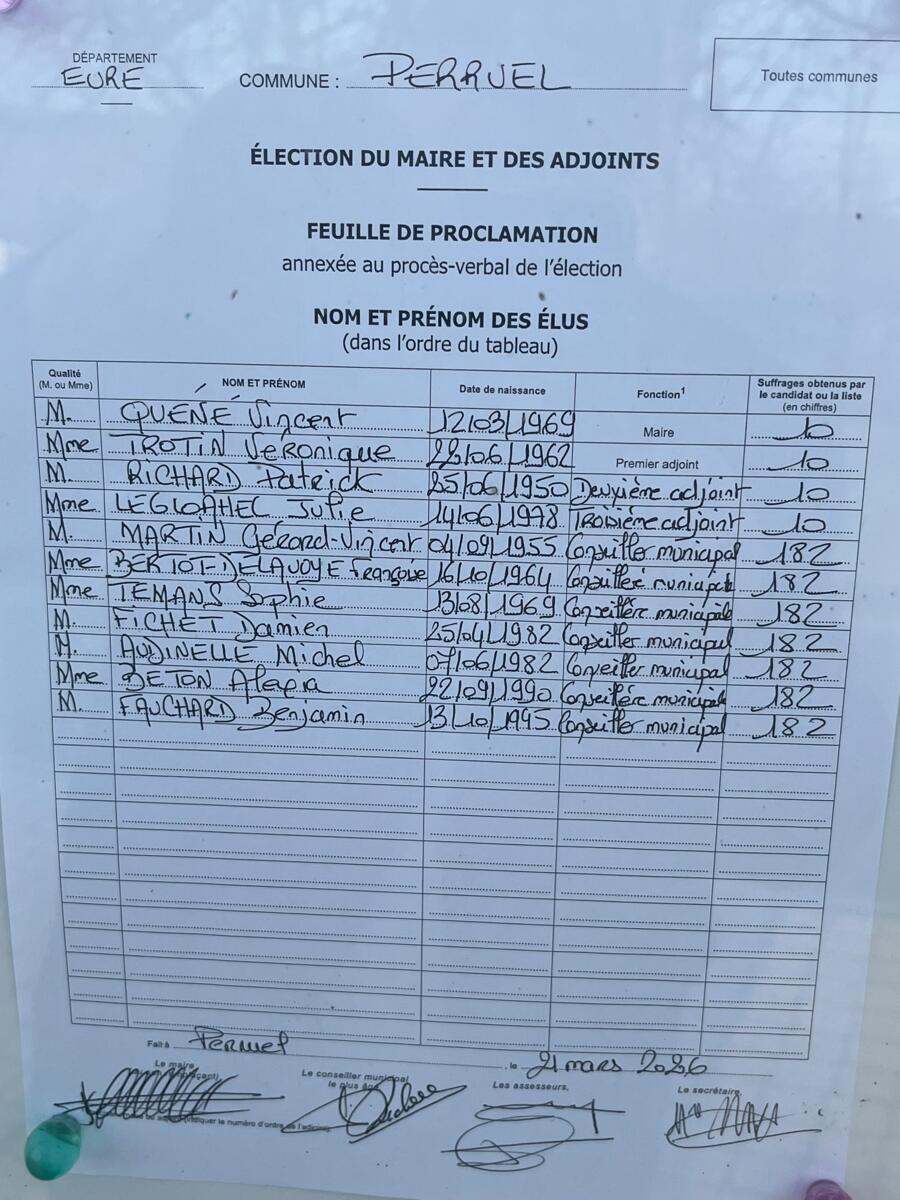 DÉPARTEMENT
EURE
COMMUNE : PERRUEL
Toutes communes
ÉLECTION DU MAIRE ET DES ADJOINTS
FEUILLE DE PROCLAMATION
annexée au procès-verbal de l'élection
NOM ET PRÉNOM DES ÉLUS
(dans l'ordre du tableau)
Qualité (M. ou Mme) NOM ET PRÉNOM Date de naissance Fonction¹ Suffrages obtenus par le candidat ou la liste (en chiffres)
M. QUÉNÉ Vincent 12/03/1969 Maire 10
Mme TROTIN Véronique /06/1962 Premier adjoint 10
M. RICHARD Patrick 25/06/1950 Deuxième adjoint 10
Mme LEGLOAHEC Julie 14/06/1978 Troisième adjoint 10
M. MARTIN Gérard-Vincent 04/09/1955 Conseiller municipal 182
Mme BERTOT-DELAVOYE Françoise 16/10/1964 Conseillère municipale 182
Mme TEMANS Sophie 13/08/1969 Conseillère municipale 182
M. FICHET Damien 25/04/1982 Conseiller municipal 182
M. AUDINELLE Michel 07/06/1982 Conseiller municipal 182
Mme BETON Alexia 22/09/1990 Conseillère municipale 182
M. FAUCHARD Benjamin 13/10/1995 Conseiller municipal 182
Fait à Perruel, le 21 mars 2026
Le maire
Le conseiller municipal le plus âgé
Les assesseurs,
Le secrétaire,
(indiquer le numéro d'ordre de l'adjoint)